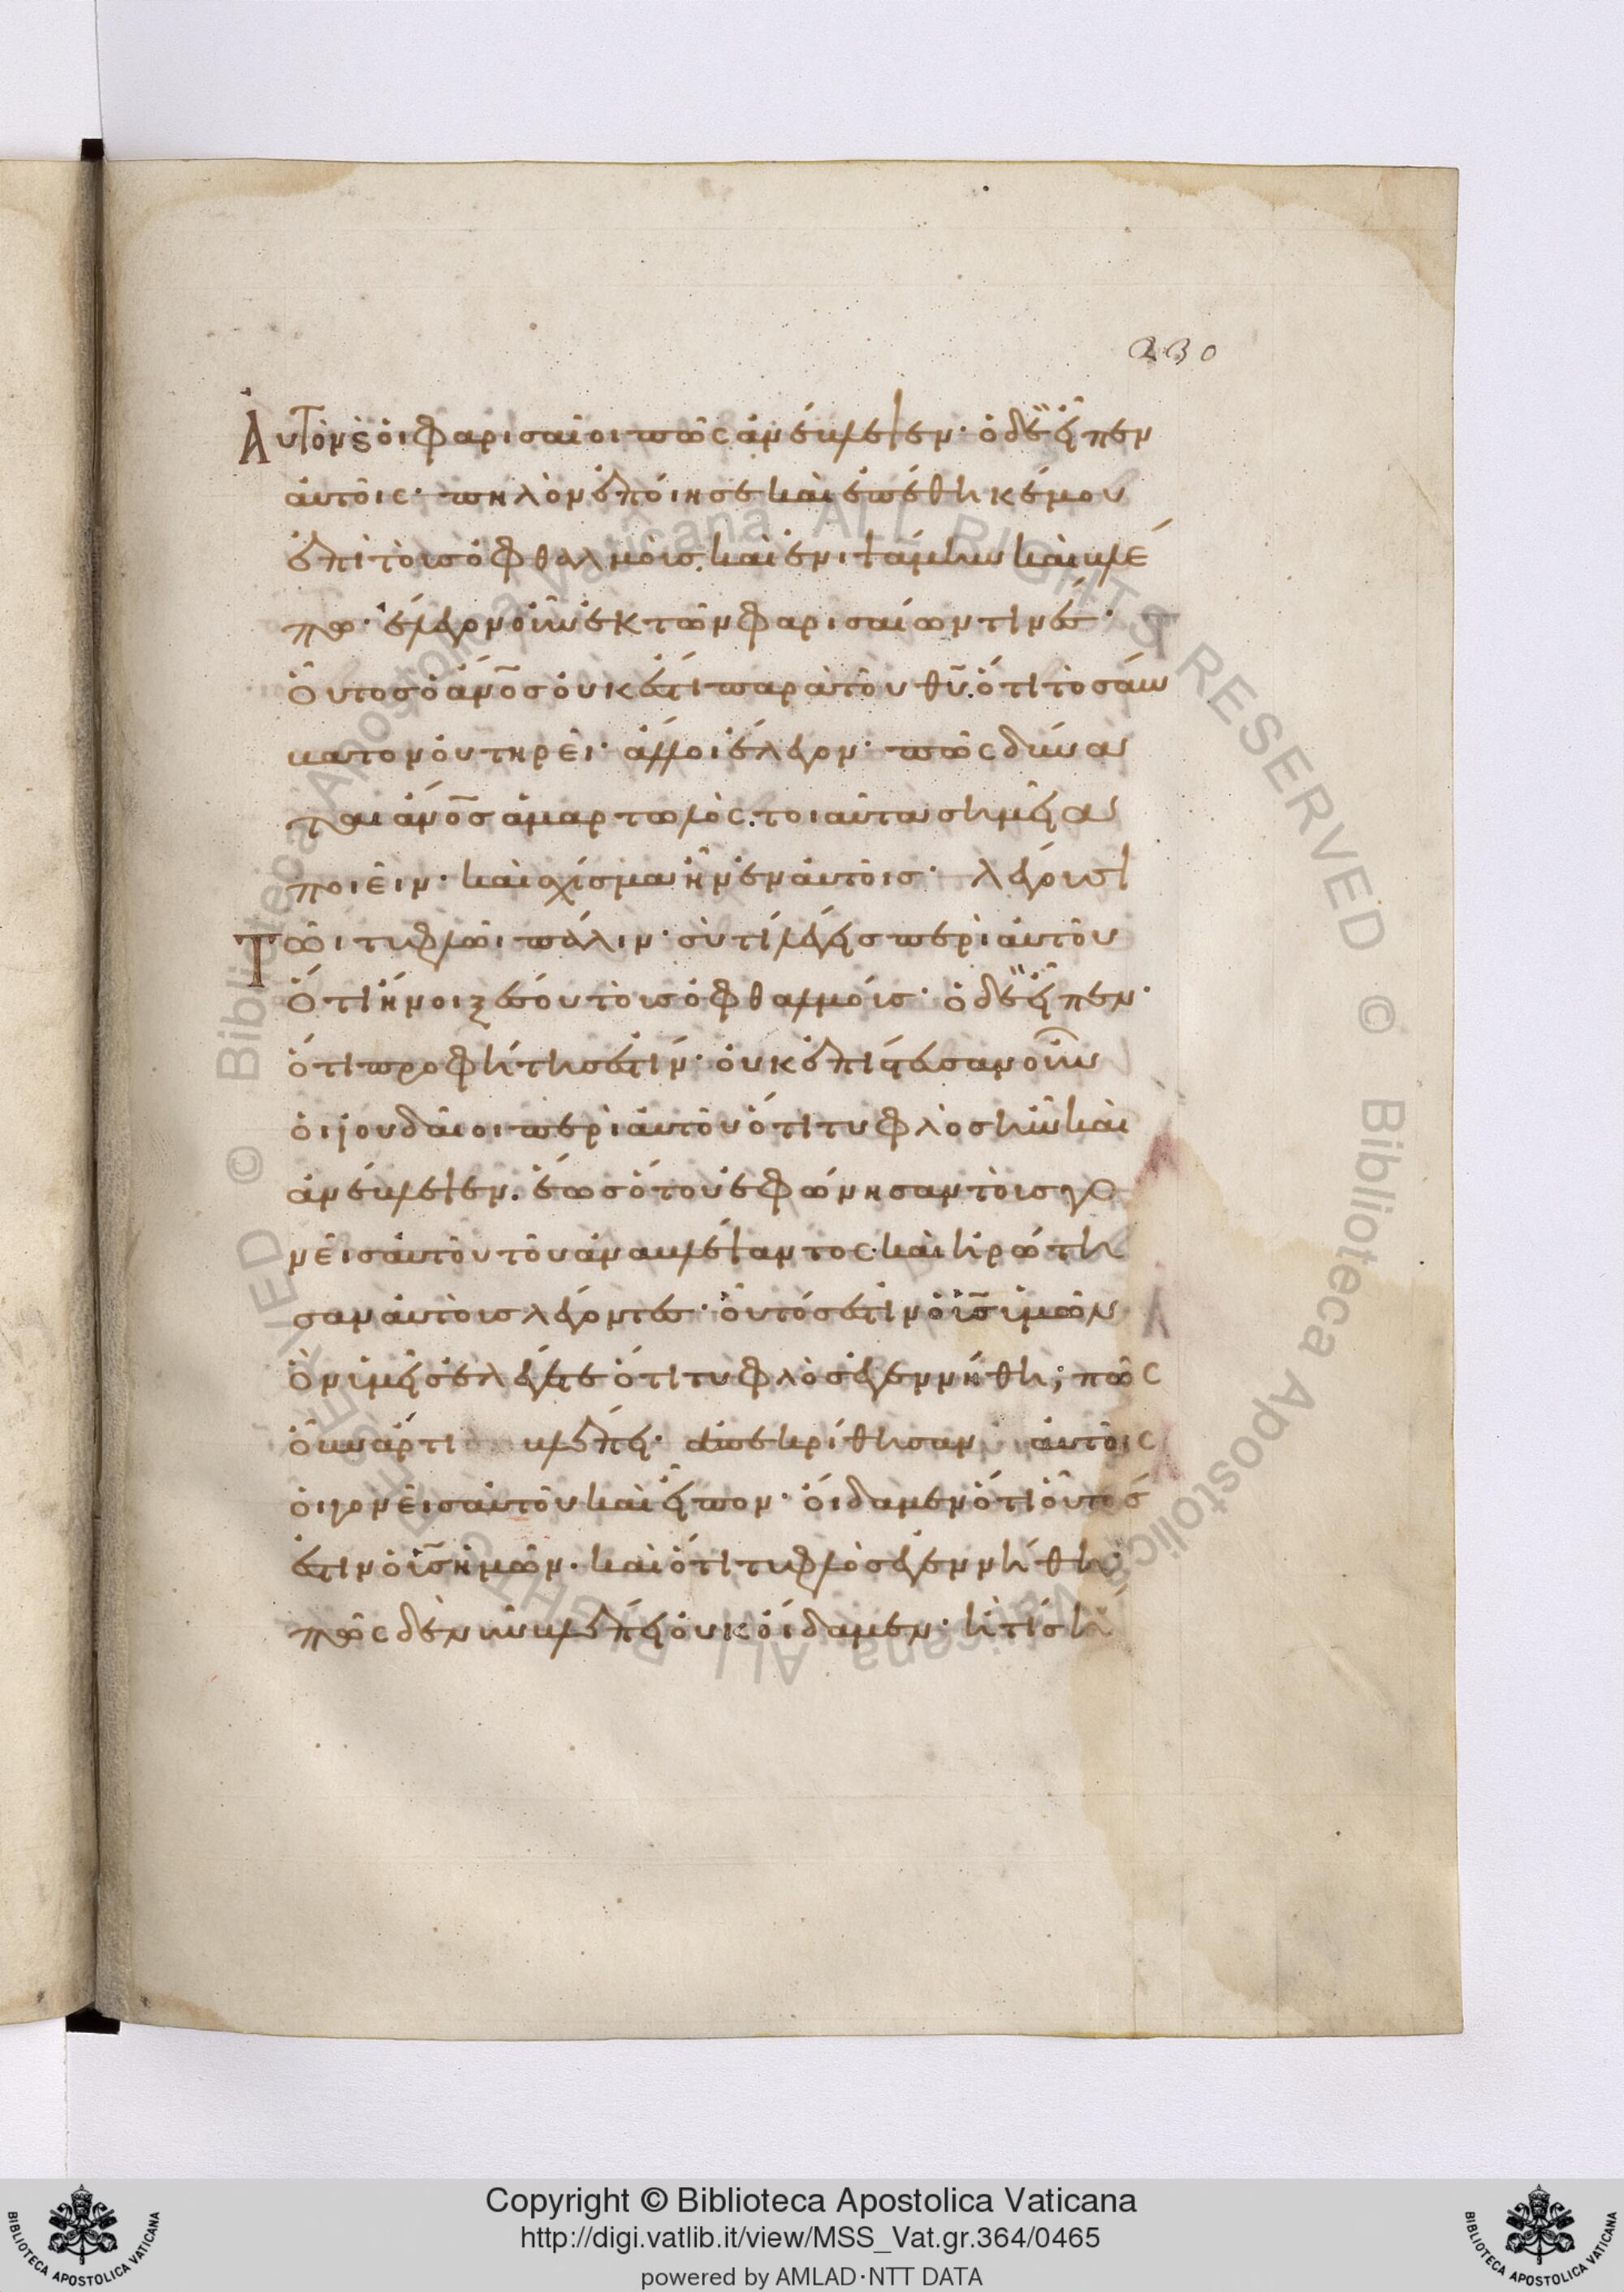 230
Αὐτὸν ϗ οἱ φαρισαῖοι πῶς ἀνέβλεψεν· ὁ δὲ εἶπεν
αὐτοῖς· πηλὸν ἐποίησε καὶ ἐπέθηκέ μου
ἐπὶ τοὺς ὀφθαλμοὺς. καὶ ἐνιψάμην καὶ βλέ
πω· ἔλεγον οὖν ἐκ τῶν φαρισαίων τινές·
Οὗτος ὁ ἄνο̅ς οὐκ ἔστι παρὰ τοῦ θυ̅. ὅτι τὸ σάβ
βατον οὐ τηρεῖ· ἄλλοι ἔλεγον· πῶς δύνα
ται ἄνο̅ς ἁμαρτωλὸς. τοιαῦτα σημεῖα
ποιεῖν· καὶ σχίσμα ἦν ἐν αὐτοῖς· λέγουσι
Τῶι τυφλῶι πάλιν· σὺ τί λέγεις περὶ αὐτοῦ
Ὅτι ἤνοιξέ σου τοὺς ὀφθαλμούς· ὁ δὲ εἶπεν·
ὅτι προφήτης ἐστίν· οὐκ ἐπίστευσαν οὖν
οἱ ἰουδαῖοι περὶ αὐτοῦ ὅτι τυφλὸς ἦν καὶ
ἀνέβλεψεν. ἕως ὅτου ἐφώνησαν τοὺς γο
νεῖς αὐτοῦ τοῦ ἀναβλέψαντος. καὶ ἠρώτη
σαν αὐτοὺς λέγοντες· οὗτός ἐστιν ὁ υἱο̅ς ὑμῶν
Ὃν ὑμεῖς λέγετε ὅτι τυφλὸς ἐγεννήθη; πῶς
οὖν ἄρτι βλέπει· ἀπεκρίθησαν αὐτοῖς
οἱ γονεῖς αὐτοῦ καὶ εἶπον· οἴδαμεν ὅτι οὗτός
ἐστιν ὁ υἱο̅ς ἡμῶν. καὶ ὅτι τυφλὸς ἐγεννήθη·
πῶς δὲ νῦν βλέπει οὐκ οἴδαμεν· ἢ τίς ἤ
Copyright © Biblioteca Apostolica Vaticana
http://digi.vatlib.it/view/MSS_Vat.gr.364/0465
powered by AMLAD·NTT DATA
BIBLIOTECA APOSTOLICA VATICANA
BIBLIOTECA APOSTOLICA VATICANA
© Biblioteca Apostolica Vaticana ALL RIGHTS RESERVED © Biblioteca Apostolica Vaticana ALL RIGHTS RESERVED